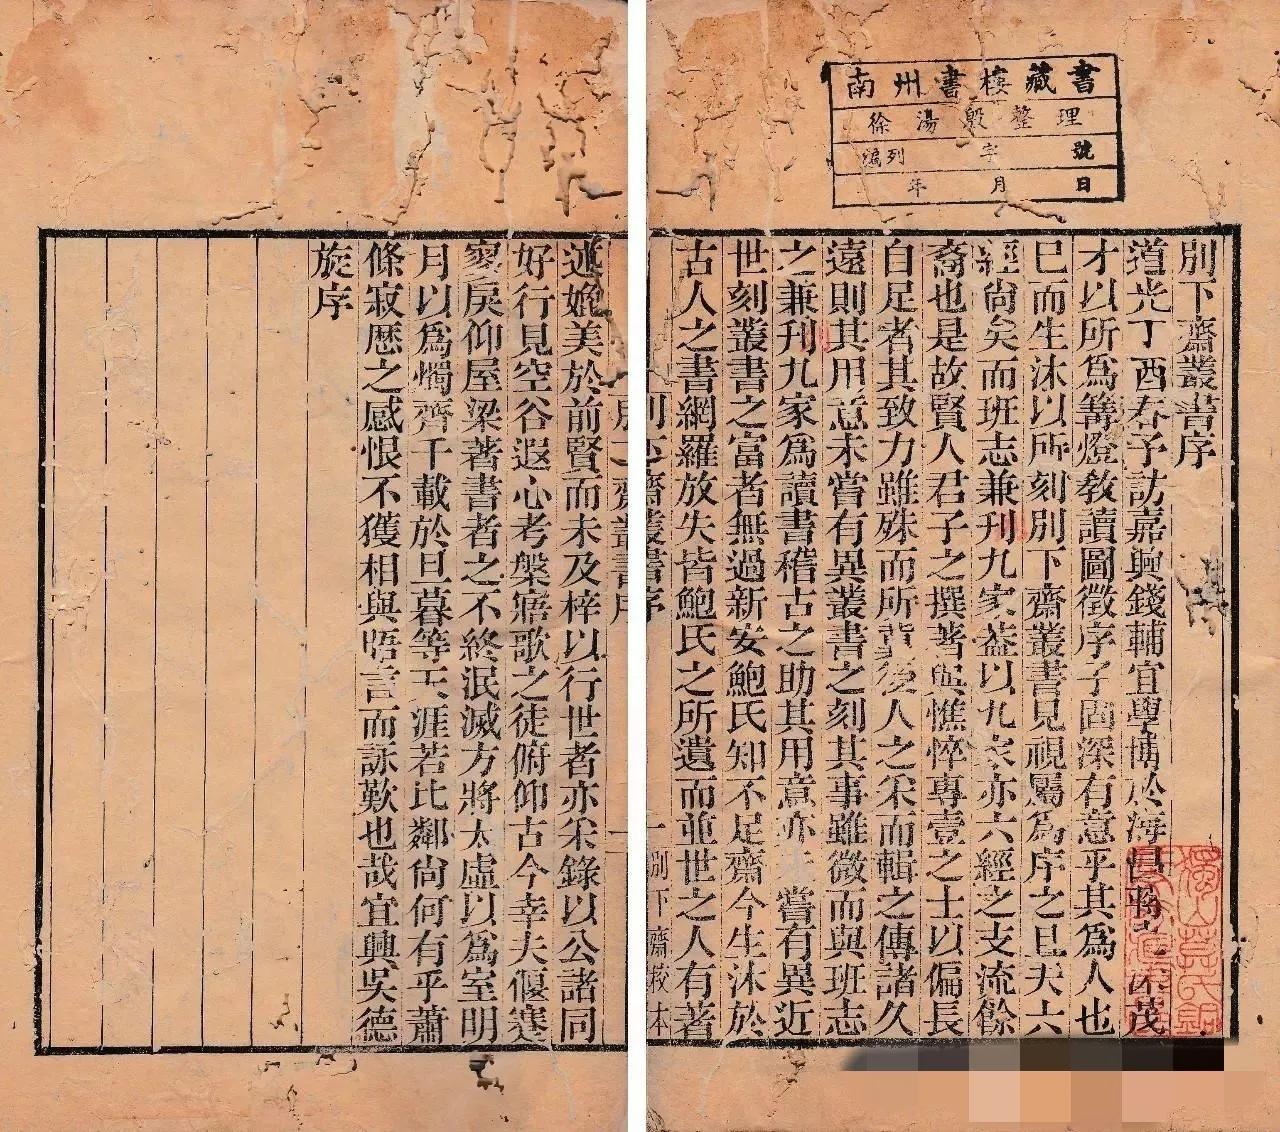 南州書樓藏書
徐湯殷整理
編列 字 號
年 月 日
別下齋叢書序
道光丁酉春予訪嘉興錢輔宜學博於海昌蔣 沐茂
才以所為篝燈敎讀圖徵序予固深有意乎其爲人也
巳而生沐以所刻別下齋叢書見視屬爲序之曰夫六
經尙矣而班志兼刊九家葢以九家亦六經之支流餘
裔也是故賢人君子之撰著與憔悴專壹之士以偏長
自足者其致力雖殊而所 後人之采而輯之傳諸久
遠則其用意未嘗有異叢書之刻其事雖微而與班志
之兼刊九家爲讀書稽古之助其用意亦未嘗有異近
世刻叢書之富者無過新安鮑氏知不足齋今生沐於
古人之書網羅放失皆鮑氏之所遺而並世之人有著
別下齋叢書序
一
別下齋校本
述媲美於前賢而未及梓以行世者亦采錄以公諸同
好行見空谷遐心考槃寤歌之徒俯仰古今幸夫偃蹇
窮戹仰屋梁著書者之不終泯滅方將太虛以爲室明
月以爲燭齊千載於旦暮等天涯若比鄰尙何有乎蕭
條寂歴之感恨不獲相與晤言而詠歎也哉宜興吳德
旋序